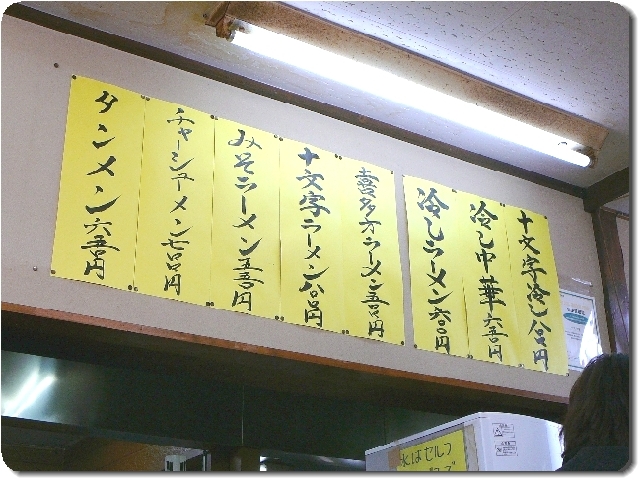 十文字冷し八〇〇円
冷し中華六五〇円
冷しラーメン六〇〇円
喜多方ラーメン五〇〇円
十文字ラーメン八〇〇円
みそラーメン五五〇円
チャーシューメン七〇〇円
タンメン六五〇円
水はセルフ